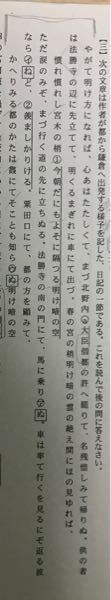 【三】次の文章は作者が都から鎌倉へ出発する様子を記した、日記の一節である。これを読んで後の問に答えなさい。
やがて明け方になれば、心もあわたたしくて、まづ北野
の許へ罷りて、名残惜しみて帰りぬ。供の者
は法勝寺の辺に先立てて、明くるまぎれに車にて出づ。春の空の梢明け暗の雲の絶え間にほの見ゆれば、
慣れ慣れし宮木の梢①今朝だにもよそに隔つる明け暗の空
ただ涙のみぞ、まづ行く道の先に立ちぬる。法勝寺の南の門にて、馬に乗り
車は率て行くを見るにぞ返る波
なら
②羨ましかりける。粟田口にて、都の方を顧みて
かへりみる都のかたは霞にてそことも知ら
明け暗の空